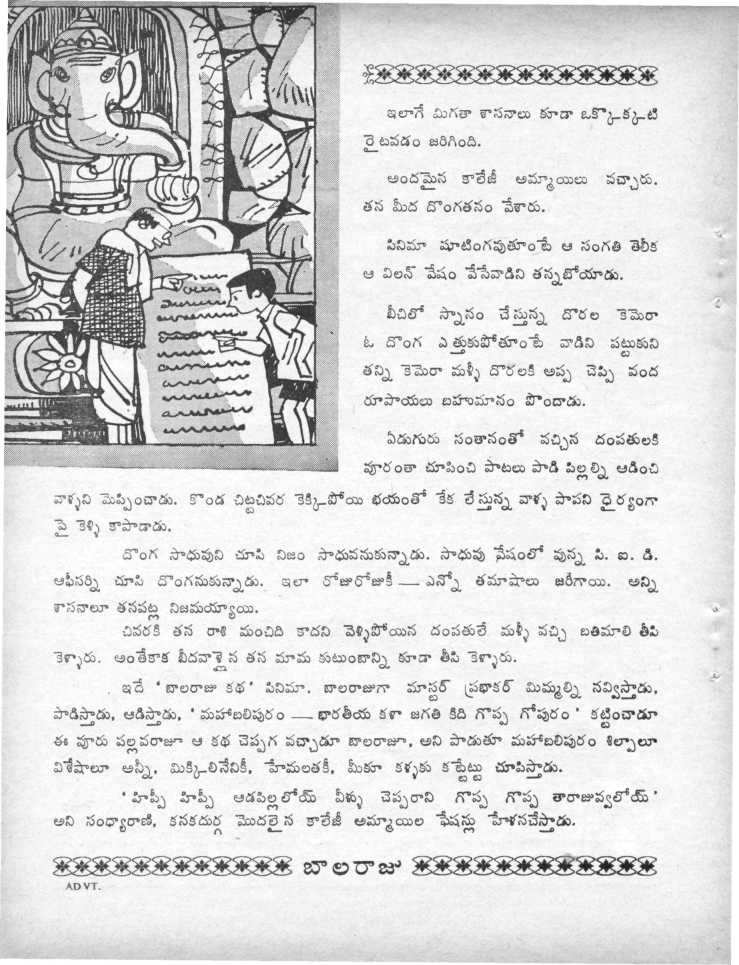 ఇలాగే మిగతా శాసనాలు కూడా ఒక్కొక్కటి
రైటవడం జరిగింది.
అందమైన కాలేజీ అమ్మాయిలు వచ్చారు.
తన మీద దొంగతనం వేశారు.
సినిమా షూటింగవుతూంటే ఆ సంగతి తెలీక
ఆ విలన్ వేషం వేసేవాడిని తన్నబోయాడు.
బీచిలో స్నానం చేస్తున్న దొరల కెమెరా
ఓ దొంగ ఎత్తుకుపోతూంటే వాడిని పట్టుకుని
తన్ని కెమెరా మళ్ళీ దొరలకి అప్ప చెప్పి వంద
రూపాయలు బహుమానం పొందాడు.
ఏడుగురు సంతానంతో వచ్చిన దంపతులకి
వూరంతా చూపించి పాటలు పాడి పిల్లల్ని ఆడించి
వాళ్ళని మెప్పించాడు. కొండ చిట్టచివర కెక్కిపోయి భయంతో కేక లేస్తున్న వాళ్ళ పాపని ధైర్యంగా
పై కెళ్ళి కాపాడాడు.
దొంగ సాధువుని చూసి నిజం సాధువనుకున్నాడు. సాధువు వేషంలో వున్న సి. ఐ. డి.
ఆఫీసర్ని చూసి దొంగనుకున్నాడు. ఇలా రోజురోజుకీ — ఎన్నో తమాషాలు జరిగాయి. అన్ని
శాసనాలూ తనపట్ల నిజమయ్యాయి.
చివరకి తన రాశి మంచిది కాదని వెళ్ళిపోయిన దంపతులే మళ్ళీ వచ్చి బతిమాలి తీసి
కెళ్ళారు. అంతేకాక బీదవాళ్లైన తన మామ కుటుంబాన్ని కూడా తీసి కెళ్ళారు.
ఇదే ' బాలరాజు కథ ' సినిమా. బాలరాజుగా మాస్టర్ ప్రభాకర్ మిమ్మల్ని నవ్విస్తాడు,
పాడిస్తాడు, ఆడిస్తాడు, ' మహాబలిపురం — భారతీయ కళా జగతి కిది గొప్ప గోపురం ' కట్టించాడూ
ఈ వూరు పల్లవరాజూ ఆ కథ చెప్పగ వచ్చాడూ బాలరాజూ, అని పాడుతూ మహాబలిపురం శిల్పాలూ
విశేషాలూ అన్నీ, మిక్కిలినేనికీ, హేమలతకీ, మీకూ కళ్ళకు కట్టేట్టు చూపిస్తాడు.
' హిప్పీ హిప్పీ ఆడపిల్లలోయ్ వీళ్ళు చెప్పరాని గొప్ప గొప్ప తారాజువ్వలోయ్ '
అని సంధ్యారాణి, కనకదుర్గ మొదలైన కాలేజీ అమ్మాయిల ఫేషన్లు హేళనచేస్తాడు.
బాలరాజు
ADVT.